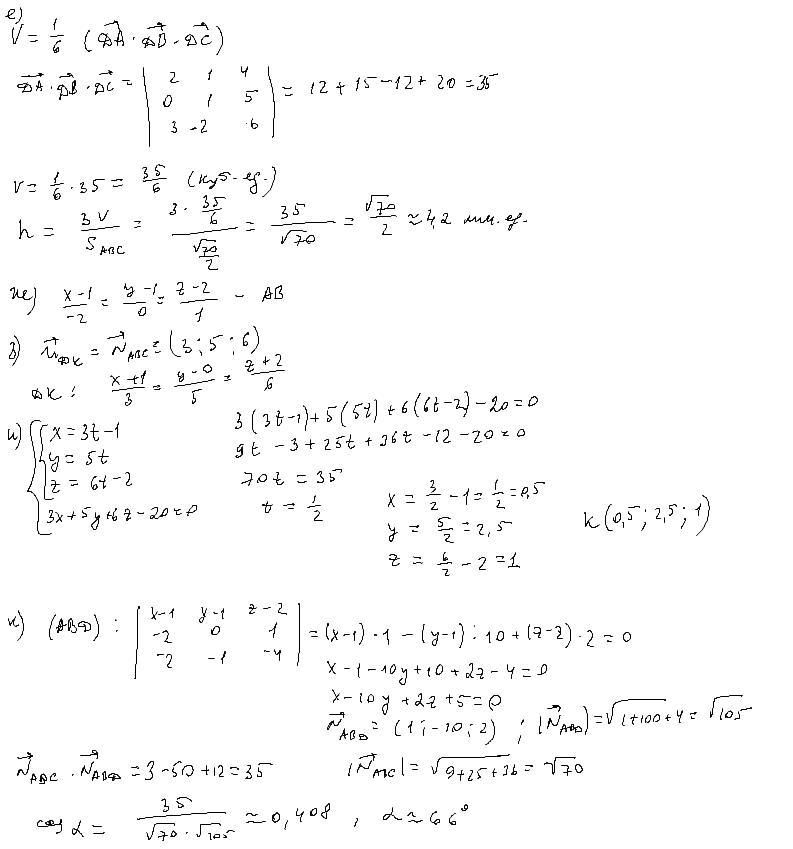 е)
V = 1/6 (DA · DB · DC)
DA · DB · DC = | 2 1 4 |
| 0 1 5 | = 12 + 15 - 12 + 20 = 35
| 3 -2 6 |
V = 1/6 · 35 = 35/6 (куб. ед.)
h = 3V/S_ABC = (3 · 35/6)/(√70/2) = 35/√70 = √70/2 ≈ 4,2 лин. ед.
ж) (x-1)/-2 = (y-1)/0 = (z-2)/1 - AB
з) n_DK = N_ABC = (3; 5; 6)
DK: (x+1)/3 = (y-0)/5 = (z+2)/6
и) { x = 3t-1 3(3t-1)+5(5t)+6(6t-2)-20=0
y = 5t 9t - 3 + 25t + 36t - 12 - 20 = 0
z = 6t-2 70t = 35
3x+5y+6z-20=0 t = 1/2
x = 3/2 - 1 = 1/2 = 0,5
y = 5/2 = 2,5 K(0,5; 2,5; 1)
z = 6/2 - 2 = 1
к) (ABD): | x-1 y-1 z-2 |
| -2 0 1 | = (x-1)·1 - (y-1)·10 + (z-2)·2 = 0
| -2 -1 -4 |
x-1-10y+10+2z-4=0
x-10y+2z+5=0
N_ABD = (1; -10; 2) ; |N_ABD| = √1+100+4 = √105
N_ABC · N_ABD = 3-50+12=35 |N_ABC| = √9+25+36 = √70
cos α = 35/(√70 · √105) ≈ 0,408 , α ≈ 66°